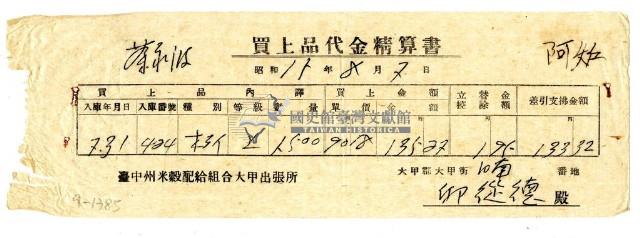 買上品代金精算書
昭和 15 年 8 月 7 日
買上品內譯 買上金額 立替金控除額 差引支拂金額
入庫年月日 入庫番號 種別 等級 數量 單價 金額
7.31 404 五 1500 9018 135.27 1.95 133.32
國史館臺灣文獻館
TAIWAN HISTORICA
臺中州米穀配給組合大甲出張所
大甲郡大甲街 番地
德 殿
9-1385